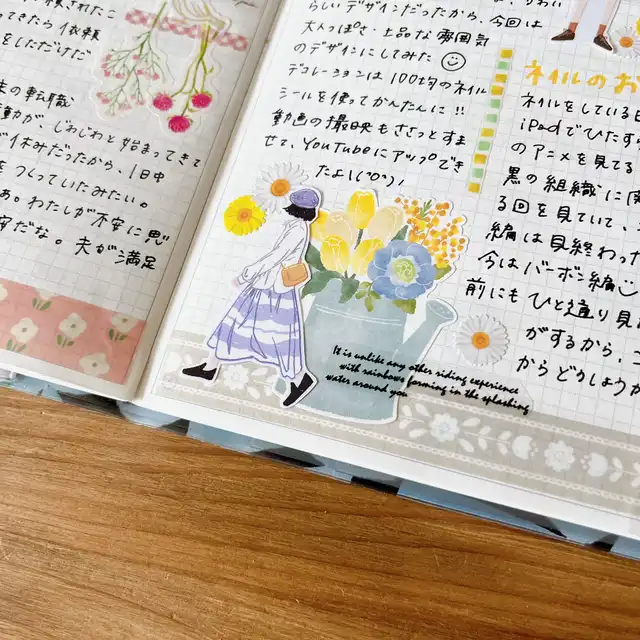 除されたこ
てきたら依頼
をしただけだ
末の転職
動が じわじわと始まってきて
が休みだったから、1日中
をつくっていたみたい。
あ。わたしが不安に思
安だな。夫が満足
らしいデザインだったから、今回は
大人っぽさ・上品な雰囲気
のデザインにしてみた
デコレーションは100均のネイル
シールを使ってかんたんに!!
動画の撮映もささっとすま
せて、YouTubeにアップでき
たよ!(^o^)/
It is unlike any other riding experience
with rainbows forming in the splashing
water around you
ネイルのお
ネイルをしているE
iPadでひたすら
のアニメを見てる
黒の組織に関
る回を見ていて、
編は見終わった
今はバーボン編
前にもひと通り見
がするから、
からどうしようか